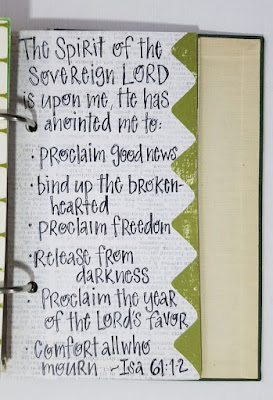 The Spirit of the
Sovereign LORD
is upon me, He has
anointed me to:
• proclaim good news
• bind up the broken-
hearted
• proclaim freedom
• Release from
darkness
• Proclaim the year
of the Lord's favor
• Comfort all who
mourn ~Isa 61:1-2